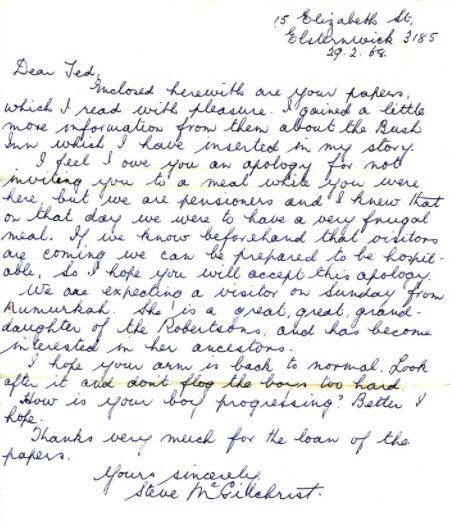 15 Elizabeth St,
Elsternwick 3185
29.2.68.
Dear Ted,
Enclosed herewith are your papers,
which I read with pleasure. I gained a little
more information from them about the Bush
Inn which I have inserted in my story.
I feel I owe you an apology for not
inviting you to a meal while you were
here, but we are pensioners and I knew that
on that day we were to have a very frugal
meal. If we know beforehand that visitors
are coming we can be prepared to be hospit-
able, so I hope you will accept this apology.
We are expecting a visitor on Sunday from
Numurkah. She is a great, great, grand-
daughter of the Robertsons, and has become
interested in her ancestors.
I hope your arm is back to normal. Look
after it and don't flog the boys too hard.
How is your boy progressing? Better I
hope.
Thanks very much for the loan of the
papers.
Yours sincerely,
Steve McGillchrist.